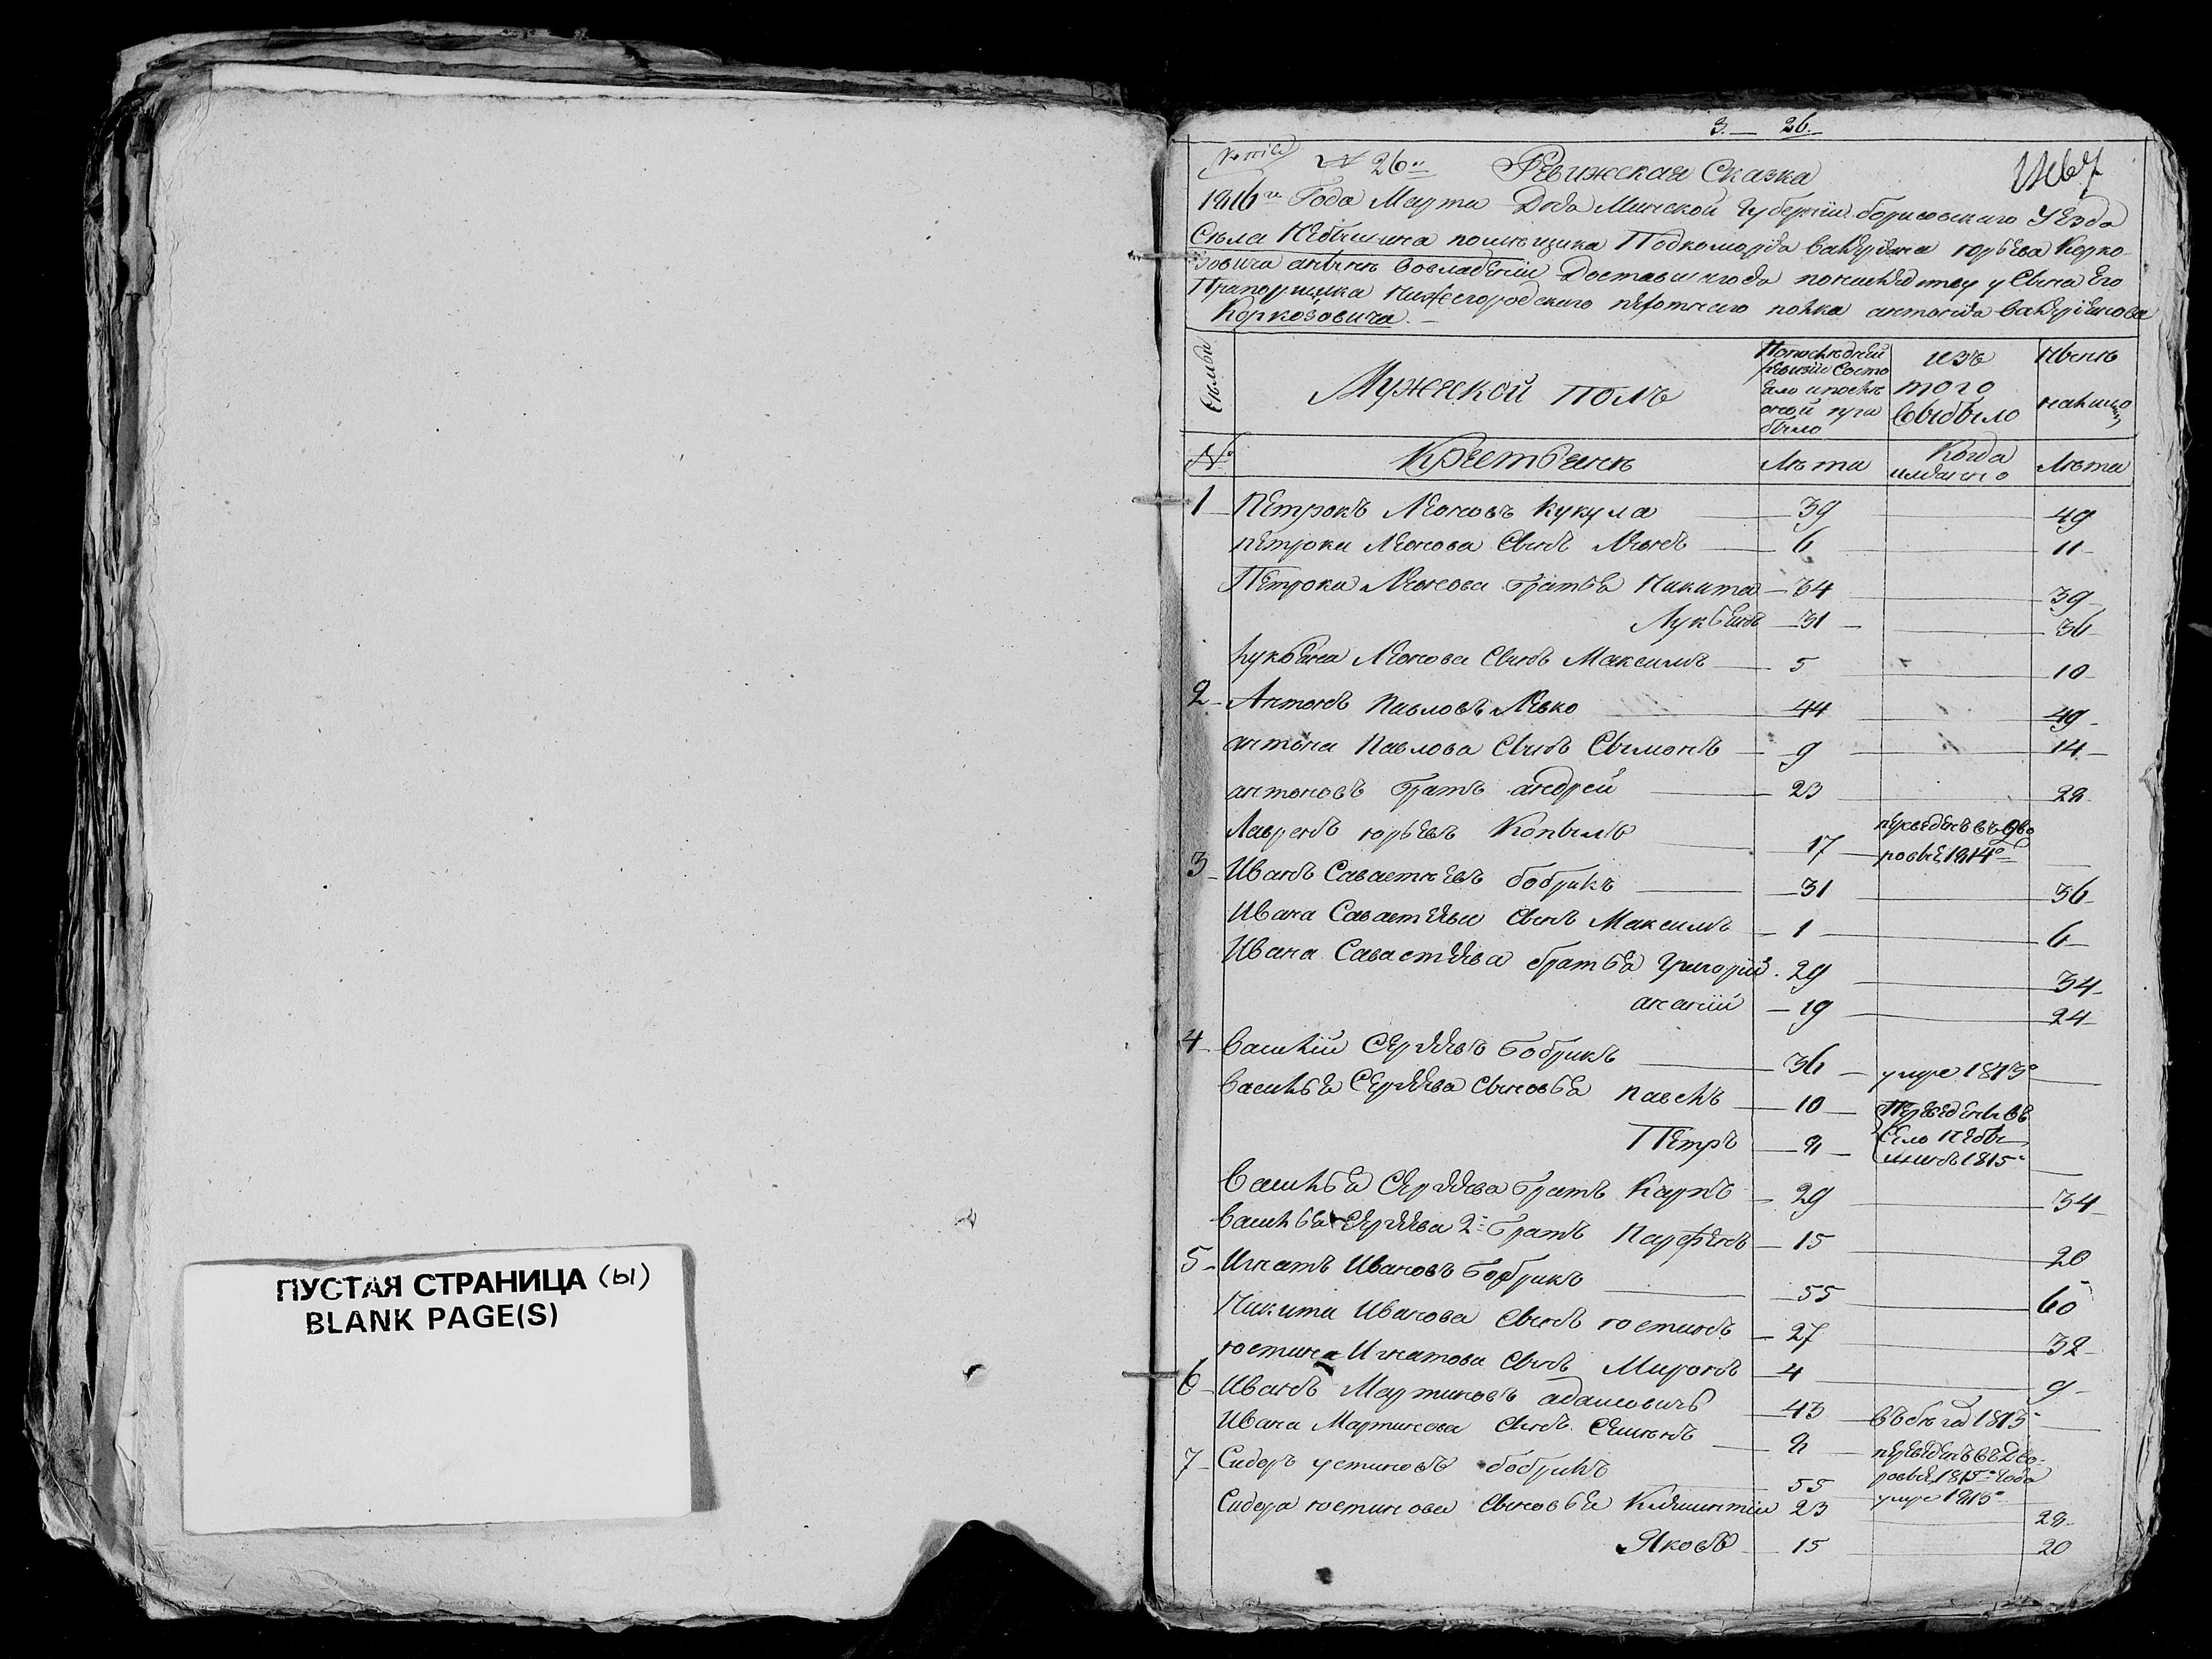 ПУСТАЯ СТРАНИЦА (ы)
BLANK PAGE(S)
3. — 26.
Копия № 26й Ревижская Сказка
1816го Года Марта Дня Минской Губернiи борисовскаго Уезда
Села Небышина помещика Подкоморiя Валерiана юрьева Корко-
зовича аныне вовладенiи Доставшагося понаследству у Сына Его
Прапорщика Нижегородскаго пехотнаго полка антонiя валерiянова
Коркозовича. —
Семьи
Мужеской полъ
Попоследней ревизiи состояло и после оной прибыло
изъ того выбыло
Ныне налицо
№
Крестьяне
Лета
Когда имянно
Лета
1 Петрокъ Леоновъ Кукула — 39 — 49
петрока Леонова Сынъ Леонъ — 6 — 11
Петрока Леонова братья Никита — 34 — 39
Лукьянъ — 31 — 36
лукьяна Леонова Сынъ Максимъ — 5 — 10
2 Антонъ Павловъ Левко — 44 — 49
антона Павлова Сынъ Сымонъ — 9 — 14
антоновъ братъ андрей — 23 — 28
Лавренъ юрьевъ Копылъ — 17 — переведенъ въ Дворовые 1814о
3 Иванъ Савастеевъ бобрикъ — 31 — 36
Ивана Савастеева Сынъ Максимъ — 1 — 6
Ивана Савастеева братья Григорiй — 29 — 34
ананiй — 19 — 24
4 Василiй Сергеевъ бобрикъ — 36 — умре 1813о
Василья Сергеева Сыновья Павелъ — 10 — Переведены въ
Петръ — 8 — Село Небышино 1815о
Василья Сергеева братъ Карпъ — 29 — 34
Василья Сергеева 2й братъ Парфенъ — 15 — 20
5 Игнатъ Ивановъ бобрикъ — 55 — 60
Никита Иванова Сынъ юстинъ — 27 — 32
юстина Игнатова Сынъ Миронъ — 4 — 9
6 Иванъ Мартиновъ адамовичъ — 43 — въ бегах 1813о
Ивана Мартинова Сынъ Семионъ — 8 — переведенъ въ Дворовые 1815о года
7 Сидоръ устиновъ бобрикъ — 55 — умре 1815о
Сидора юстинова Сыновья Клементiй 23 — 28
Яковъ — 15 — 20